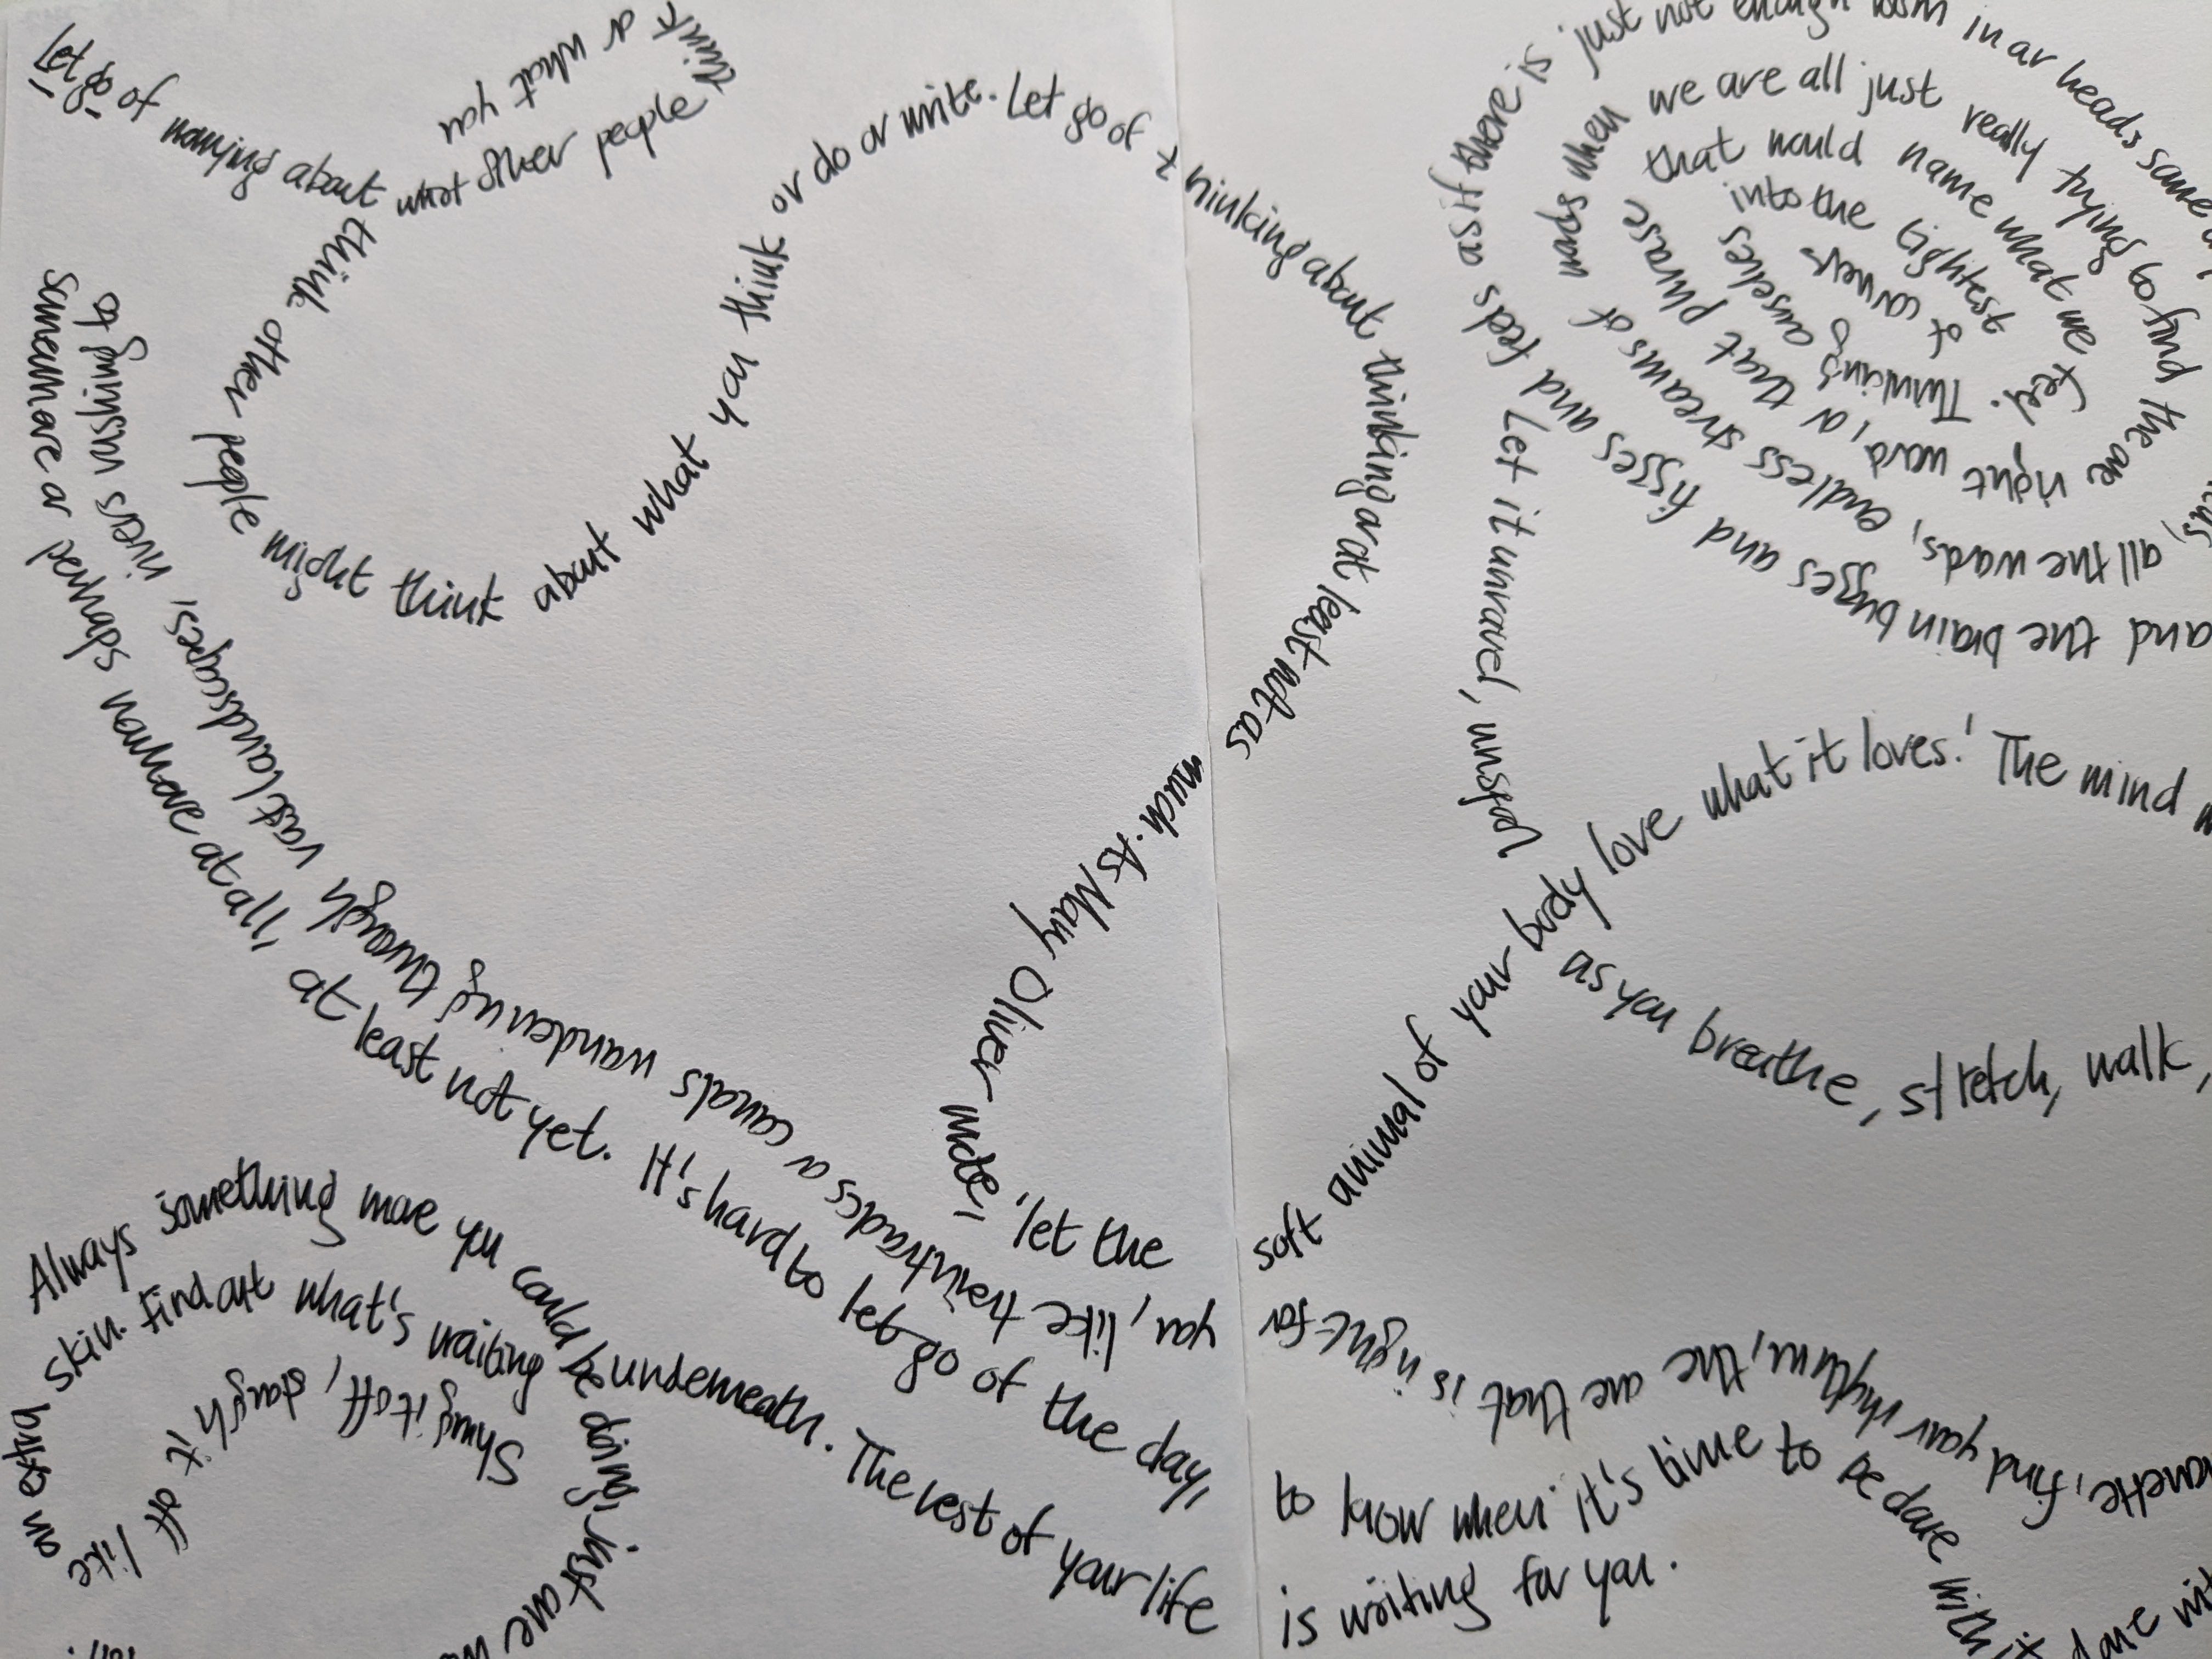 Let go of worrying about what other people think or what you think other people might think about what you think or do or write. Let go of thinking about thinking or at least not as much. As Mary Oliver wrote, 'let the soft animal of your body love what it loves.' The mind
and the brain buzzes and fizzes and feels as if there is just not enough room in our heads
all the words, endless streams of words when we are all just really trying to find the one right word, or that phrase that would name what we feel. Thinking ourselves into the tightest of corners.
Let it unravel, unspool
as you breathe, stretch, walk,
find your rhythm, the one that is right for you, like train tracks or canals wandering through vast landscapes, rivers rushing to somewhere or perhaps nowhere at all, at least not yet. It's hard to let go of the day, to know when it's time to be done with it
done
Always something more you could be doing, just one
Shrug it off, slough it off like an extra skin. Find out what's waiting underneath. The rest of your life is waiting for you.